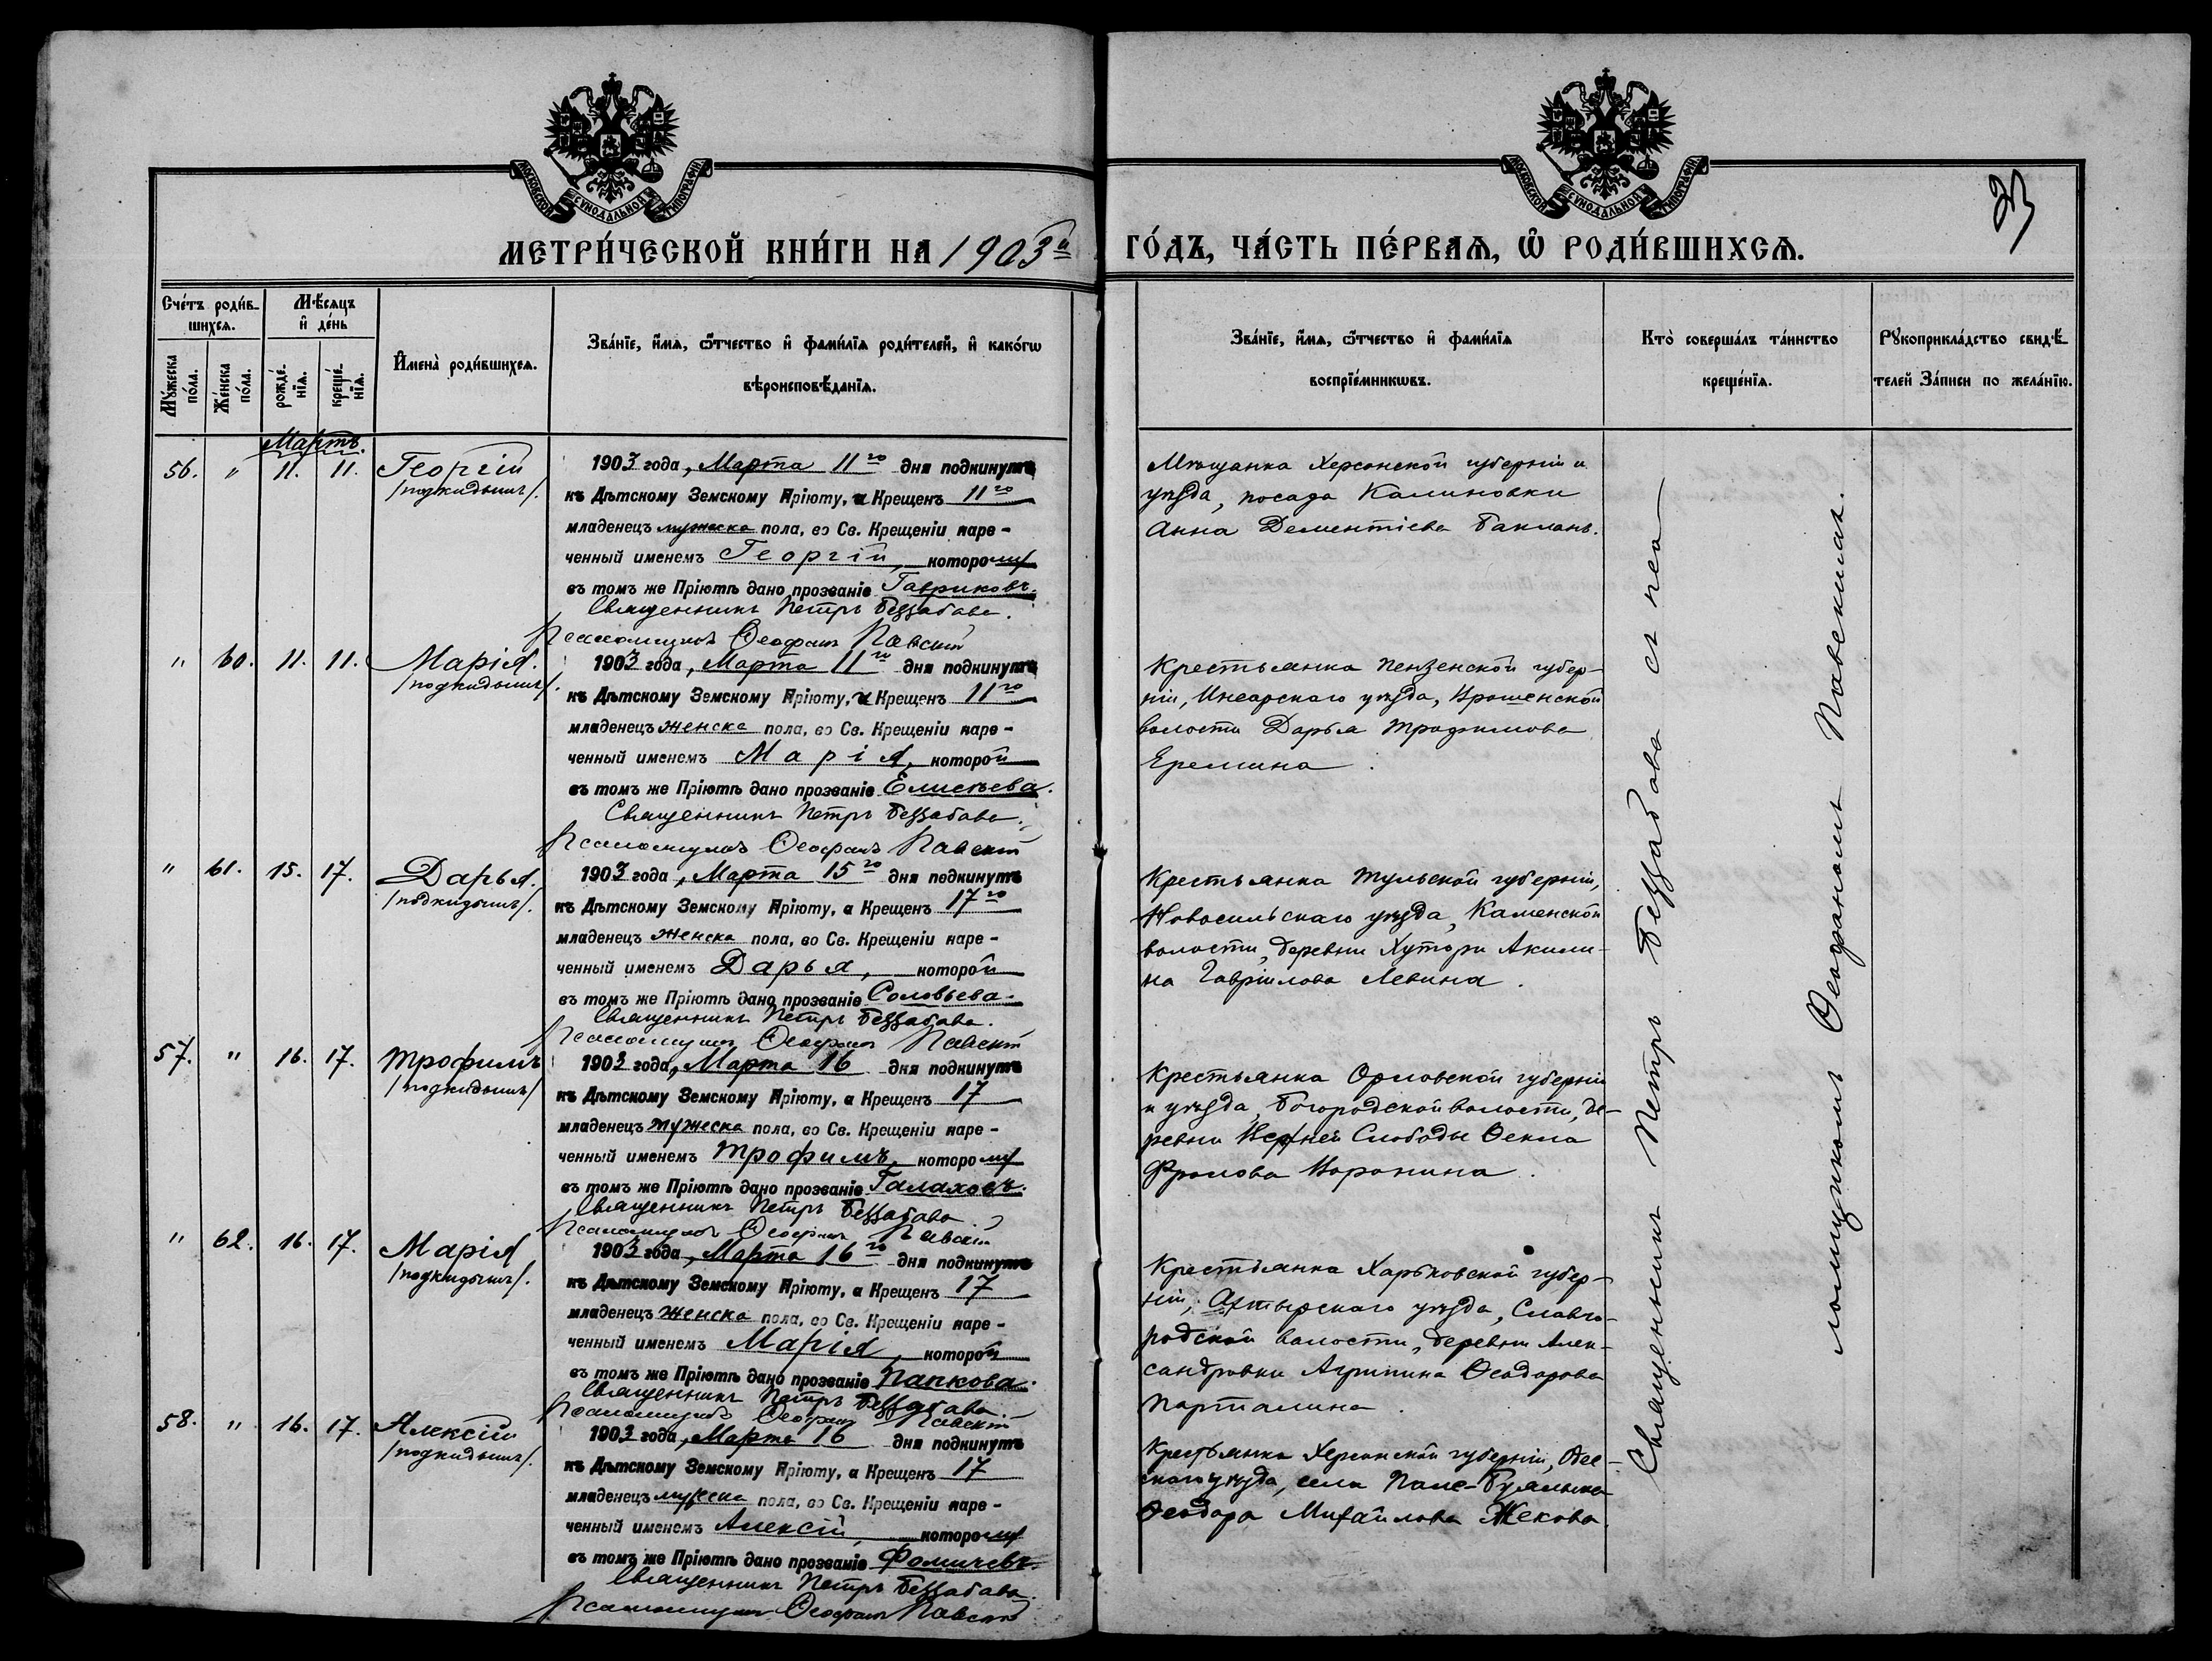 МОСКОВСКОЙ СѴНОДАЛЬНОЙ ТИПОГРАФІИ
МЕТРИ́ЧЕСКОЙ КНИ́ГИ НА 1903й
Сче́тъ роди́в-
шихсѧ.
Мѣ́сѧцъ
и҆ де́нь
Мꙋ́жеска
по́ла.
Же́нска
по́ла.
рожде́-
нїѧ.
креще́-
нїѧ.
И҆мена̀ роди́вшихсѧ.
Зва́нїе, и҆́мѧ, ѻ҆́тчество и҆ фами́лїѧ роди́телей, и҆ како́гѡ
вѣроисповѣ́данїѧ.
Мартъ.
56. " 11. 11. Георгій
/подкидышъ/.
1903 года, Марта 11го дня подкинутъ
къ Дѣтскому Земскому Пріюту, а Крещенъ 11го
младенецъ мужеска пола, во Св. Крещеніи наре-
ченный именемъ Георгій, которому
въ томъ же Пріютѣ дано прозваніе Гавриковъ.
Священникъ Петръ Беззабава.
Псаломщикъ Ѳеофанъ Павскій
" 60. 11. 11. Марія.
/подкидышъ/.
1903 года, Марта 11го дня подкинута
къ Дѣтскому Земскому Пріюту, а Крещенъ 11го
младенецъ женска пола, во Св. Крещеніи наре-
ченный именемъ Марія, которой
въ томъ же Пріютѣ дано прозваніе Елисѣева.
Священникъ Петръ Беззабава.
Псаломщикъ Ѳеофанъ Павскій
" 61. 15. 17. Дарья.
/подкидышъ/.
1903 года, Марта 15го дня подкинутъ
къ Дѣтскому Земскому Пріюту, а Крещенъ 17го
младенецъ женска пола, во Св. Крещеніи наре-
ченный именемъ Дарья, которой
въ томъ же Пріютѣ дано прозваніе Соловьева.
Священникъ Петръ Беззабава.
Псаломщикъ Ѳеофанъ Павскій
57. " 16. 17. Трофимъ
/подкидышъ/
1903 года, Марта 16 дня подкинутъ
къ Дѣтскому Земскому Пріюту, а Крещенъ 17
младенецъ мужеска пола, во Св. Крещеніи наре-
ченный именемъ Трофимъ, которому
въ томъ же Пріютѣ дано прозваніе Галаховъ.
Священникъ Петръ Беззабава.
Псаломщикъ Ѳеофанъ Павскій
" 62. 16. 17. Марія
/подкидышъ/.
1903 года, Марта 16го дня подкинутъ
къ Дѣтскому Земскому Пріюту, а Крещенъ 17
младенецъ женска пола, во Св. Крещеніи наре-
ченный именемъ Марія, которой
въ томъ же Пріютѣ дано прозваніе Папкова.
Священникъ Петръ Беззабава
Псаломщикъ Ѳеофанъ Павскій
58. " 16. 17. Алексій
/подкидышъ/.
1903 года, Марта 16 дня подкинутъ
къ Дѣтскому Земскому Пріюту, а Крещенъ 17
младенецъ мужеска пола, во Св. Крещеніи наре-
ченный именемъ Алексій, которому
въ томъ же Пріютѣ дано прозваніе Фомичевъ.
Священникъ Петръ Беззабава.
Псаломщикъ Ѳеофанъ Павскій
МОСКОВСКОЙ СѴНОДАЛЬНОЙ ТИПОГРАФІИ
ГО́ДЪ, ЧА́СТЬ ПЕ́РВАѦ, Ѽ РОДИ́ВШИХСѦ.
Зва́нїе, и҆́мѧ, ѻ҆́тчество и҆ фами́лїѧ
воспрїе́мникѡвъ.
Кто̀ соверша́лъ та́инство
креще́нїѧ.
Рꙋкоприкла́дство свидѣ́-
телей За́писи по жела́нїю.
Мѣщанка Херсонской губерніи и
уѣзда, посада Калиновки
Анна Дементіева Бакланъ.
Крестьянка Пензенской губер-
ніи, Инсарскаго уѣзда,
волости Дарья Трофимова
Еремина.
Крестьянка Тульской губерніи,
Новосильскаго уѣзда, Каменской
волости, деревни Хутори Акили-
на Гавріилова Левина.
Крестьянка Орловской губерніи
и уѣзда, Богородской волости, де-
ревни Слободы Ѳекла
Фролова Воронина.
Крестьянка Харьковской губер-
ніи, Ахтырскаго уѣзда, Славго-
родской волости, деревни Алек-
сандровки Агрипина Ѳеодорова
Парталина.
Крестьянка Херсонской губерніи, Одес-
скаго уѣзда, села
Ѳеодора Михайлова Жекова.
Священникъ Петръ Беззабава съ пса-
ломщикомъ Ѳеофаномъ Павскимъ.